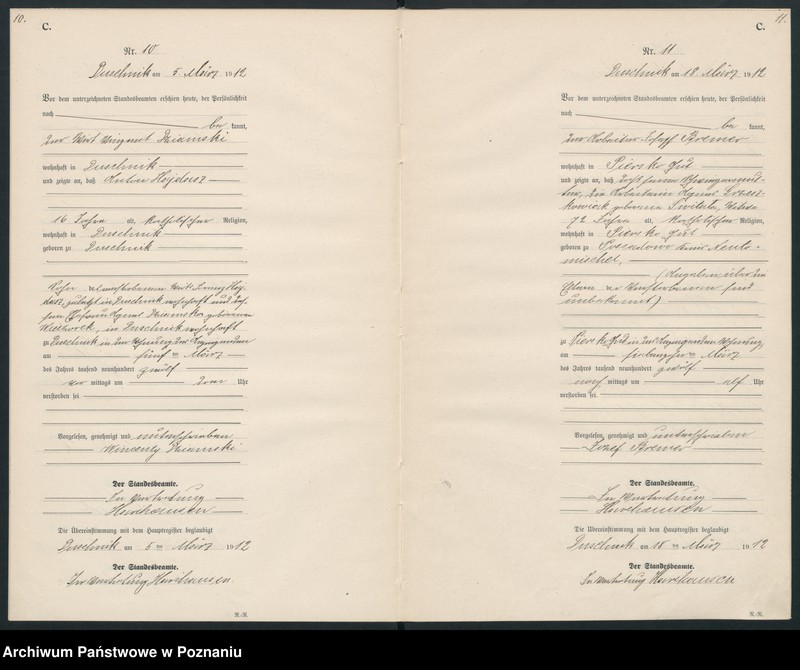 10.
C.
Nr. 10
Duschnik am 5. März 1912
Vor dem unterzeichneten Standesbeamten erschien heute, der Persönlichkeit
nach
be kannt,
der Wirt Vinzent Dziamski
wohnhaft in Duschnik
und zeigte an, daß Anton Hojdasz
16 Jahre alt, katholischer Religion,
wohnhaft in Duschnik
geboren zu Duschnik
Sohn des verstorbenen Wirt Hoj-
dasz, zuletzt in Duschnik wohnhaft und des-
sen Ehefrau Agnes Dziamska geborenen
in Duschnik wohnhaft
zu Duschnik in der Wohnung des Anzeigenden
am fünften März
des Jahres tausend neunhundert zwölf
vor mittags um Uhr
verstorben sei.
Vorgelesen, genehmigt und unterschrieben
Wincenty Dziamski
Der Standesbeamte.
In Vertretung
Die Übereinstimmung mit dem Hauptregister beglaubigt
Duschnik am 5ten März 1912
Der Standesbeamte.
In Vertretung
R.-R.
11.
C.
Nr. 11
Duschnik am 18. März 1912
Vor dem unterzeichneten Standesbeamten erschien heute, der Persönlichkeit
nach
be kannt,
der Arbeiter Josef Bremer
wohnhaft in Piersko Gut
und zeigte an, daß seine Schwiegermut-
ter, die Arbeiterin Agnes
kowiak geborene Witwe
72 Jahre alt, katholischer Religion,
wohnhaft in Piersko Gut
geboren zu Kreis Neuto-
mischel,
(Angaben über die
Eltern der Verstorbenen sind
unbekannt)
zu Piersko Gut in des Anzeigenden Wohnung
am siebzehnten März
des Jahres tausend neunhundert zwölf
nach mittags um elf Uhr
verstorben sei.
Vorgelesen, genehmigt und unterschrieben
Jozef Bremer
Der Standesbeamte.
In Vertretung
Die Übereinstimmung mit dem Hauptregister beglaubigt
Duschnik am 18ten März 1912
Der Standesbeamte.
In Vertretung
R.-R.
Archiwum Państwowe w Poznaniu